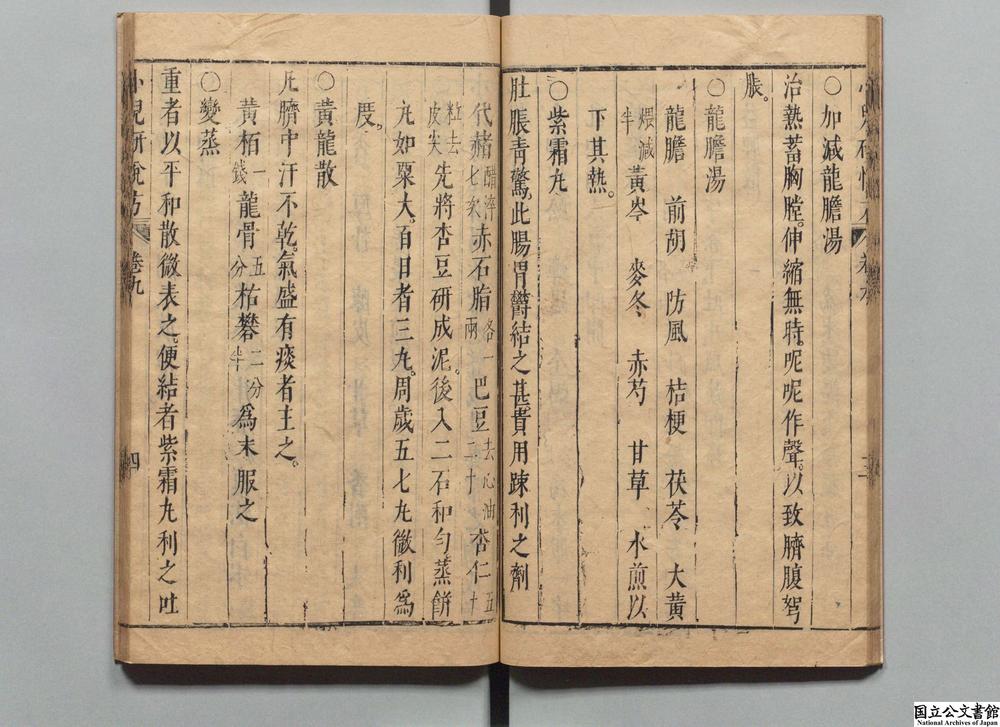 ○加減龍膽湯
治熱蓄胸膛。伸縮無時。呢呢作聲。以致臍腹
脹。
○龍膽湯
龍膽 前胡 防風 桔梗 茯苓 大黄
煨減半 黃岑 麥冬 赤芍 甘草 水煎以
下其熱。
○紫霜丸
肚脹青驚。此腸胃鬱結之甚。貴用踈利之劑
代赭醋淬七次 赤石脂各一兩 巴豆去心油二十 杏仁五十
粒去皮尖 先將杏豆研成泥。後入二石和勻蒸餅
丸如粟大。百日者三丸。周歲五七丸微利爲
度。
○黃龍散
凡臍中汗不乾。氣盛有痰者主之。
黃栢一錢 龍骨五分 枯礬二分半 爲末服之
○變蒸
重者以平和散微表之。便結者紫霜丸利之吐
小兒研
方
卷九
四
国立公文書館
National Archives of Japan